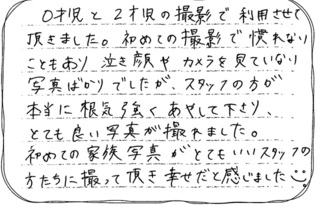 0才児と2才児の撮影で利用させて
頂きました。初めての撮影で慣れない
こともあり泣き顔やカメラを見ていない
写真ばかりでしたが、スタッフの方が
本当に根気強くあやして下さり、
とても良い写真が撮れました。
初めての家族写真がとてもいいスタッフの
方たちに撮って頂き幸せだと感じました